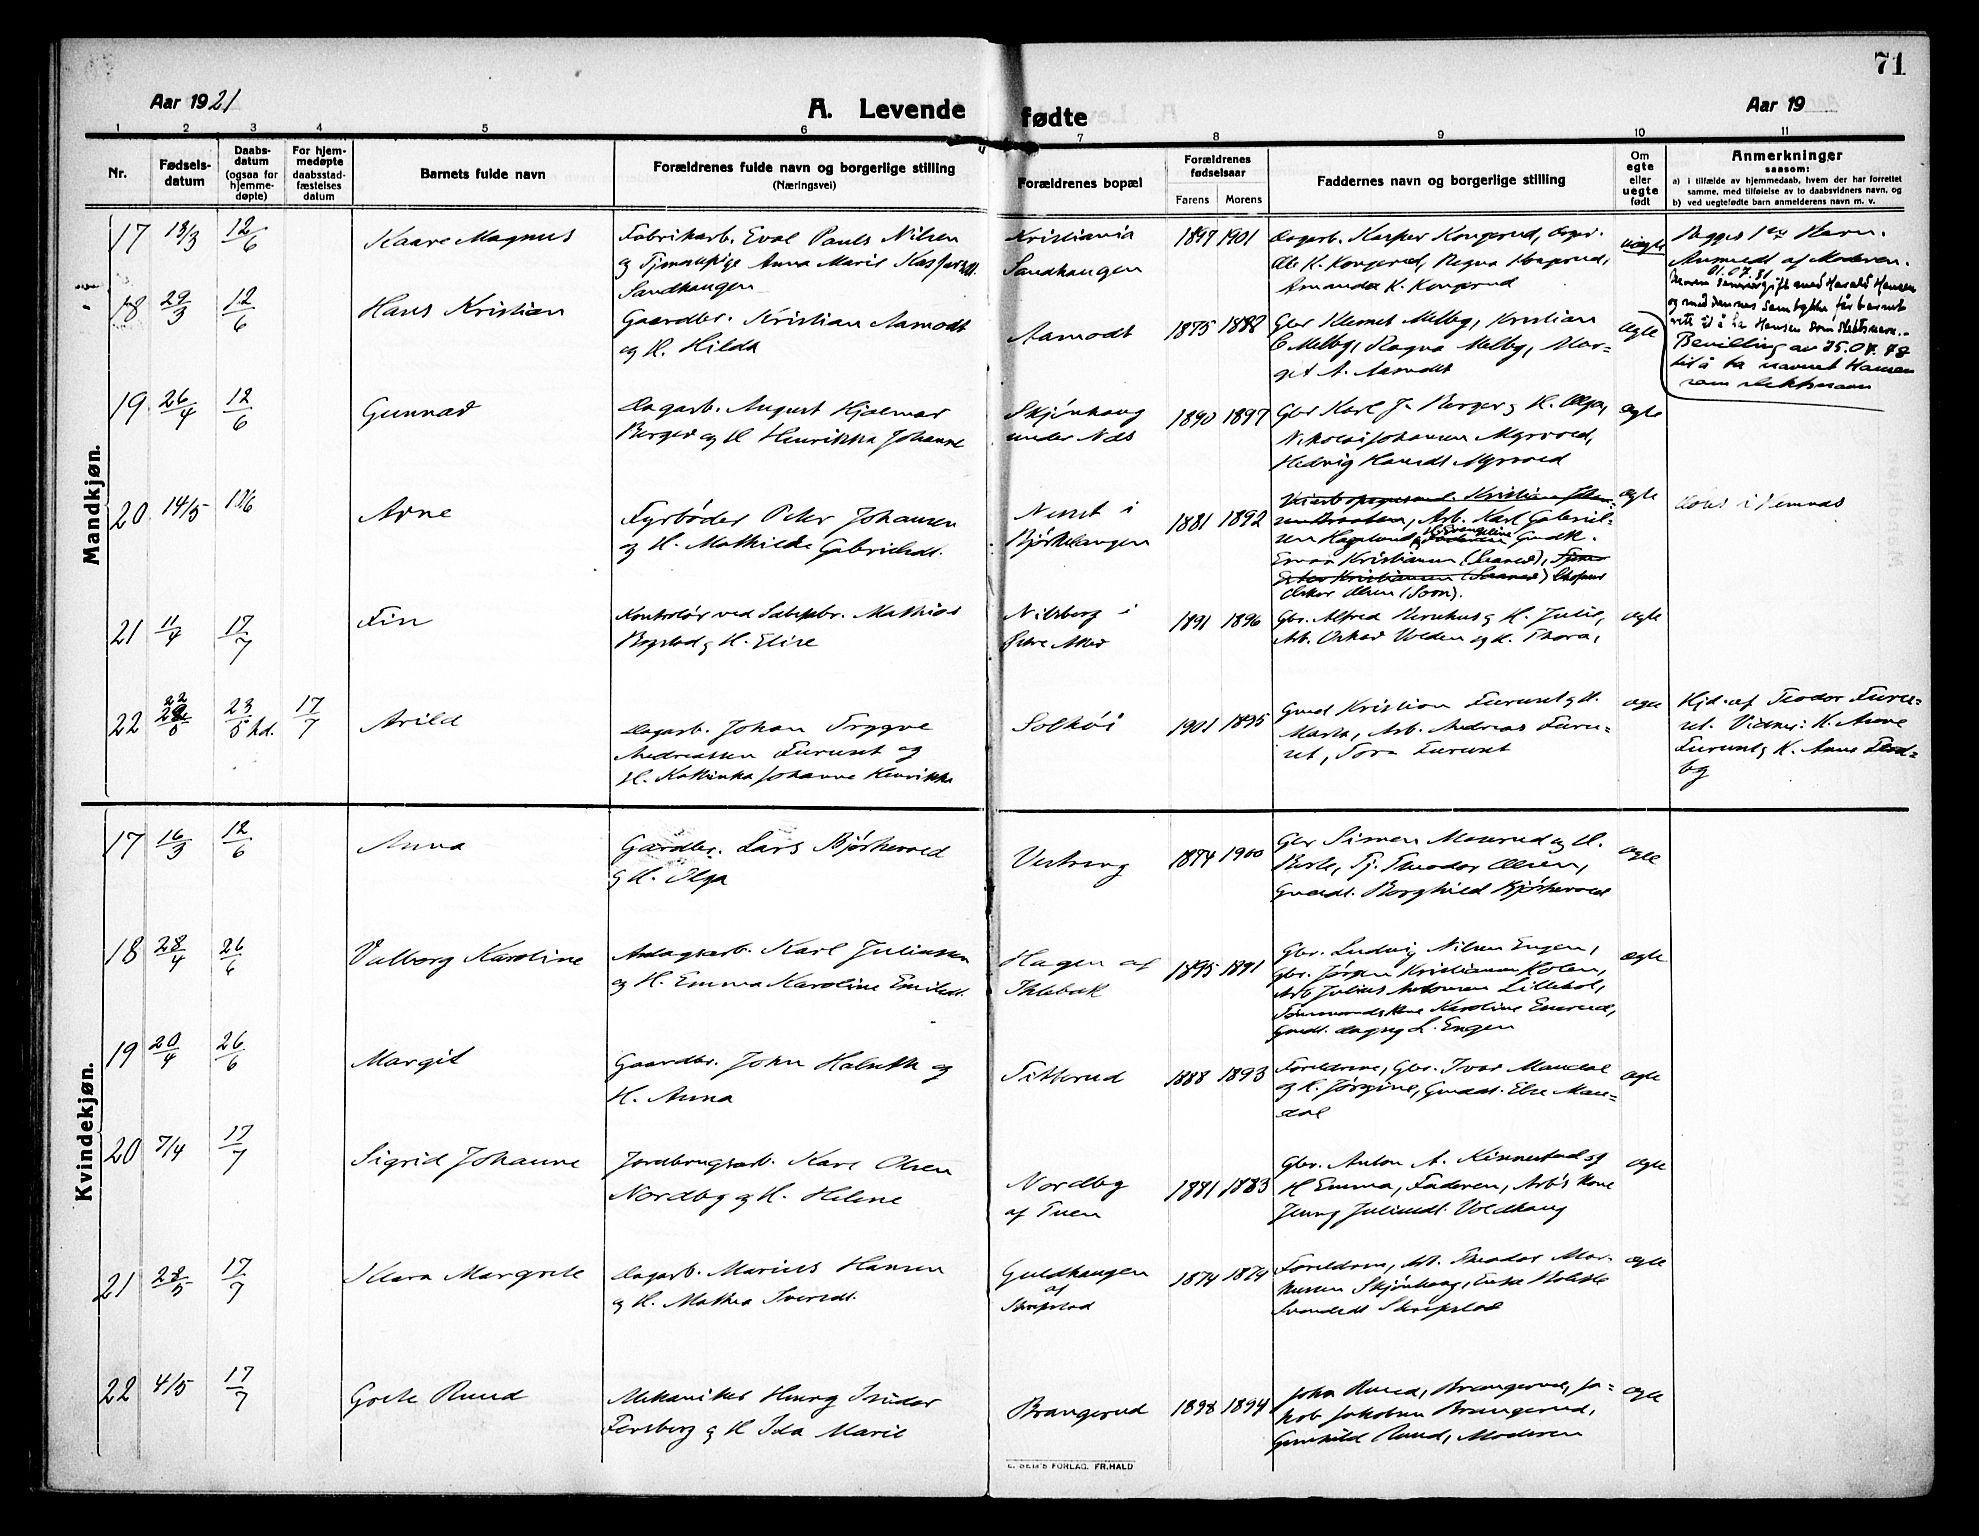 71
Aar 1921
A. Levende
fødte
Aar 19
1 2 3 4 5 6 7 8 9 10 11
Nr.
Fødsels-
datum
Daabs-
datum
(ogsaa for
hjemme-
døpte)
For hjem-
medøpte
daabsstad-
fæstelses
datum
Barnets fulde navn
Forældrenes fulde navn og borgerlige stilling
(Næringsvei)
Forældrenes bopæl
Forældrenes
fødselsaar
Farens Morens
Faddernes navn og borgerlige stilling
Om
egte
eller
uegte
født
Anmerkninger
saasom:
a) i tilfælde av hjemmedaab, hvem der har forrettet
samme, med tilføielse av to daabsvidners navn, og
b) ved uegtefødte barn anmelderens navn m. v.
Mandkjøn.
17 13/3 12/6
Kaare Magnus
Fabrikarb. Eval Pauls Nilsen
og Tjenestepige Anna Marie Kaspersd.
Sandhaugen
Kristiania
Sandhaugen
1897 1901
Dagarb. Kasper Kongerud,
K. Kongerud, Ragna
Amanda K. Kongerud
uægte
Begges 1ste Barn.
Anmeldt af Moderen.
01.07.31
Moren senere gift med Harald Hansen
og med dennes samtykke får barnet
rett til å ta Hansen som slektsnavn.
Bevilling av 25.07.78
til å ta navnet Hansen
som slektsnavn
18 29/3 12/6
Hans Kristian
Gaardbr. Kristian Aamodt
og H. Hilda
Aamodt
1875 1888
Gbr Klemet Melby, Kristian
C Melby, Ragna Melby, Mar-
git A. Aamodt
ægte
19 26/4 12/6
Gunnar
Dagarb. August Hjalmar
Berger og H Henrikka Johanne
Skjønhaug
under Næs
1890 1897
Gbr Karl J. Berger og H. Olga,
Nikolai Johansen Myrvold,
Hedvig Hansdt Myrvold
ægte
20 14/5 12/6
Arne
Fyrbøder Peter Johansen
og H. Mathilde Gabrielsdt.
Neset i
Bjørkelangen
1881 1892
Kristian
Braaten, Arb. Karl Gabriel-
sen Hagelund, H. Evangeline Gmdk.
Emma Kristiansen
Kristiansen
Oskar Olsen (Soon).
ægte
Døbt i Hemnæs
21 11/4 17/7
Fin
Kontrolør ved Mathias
Bogstad og H. Elise
Nilsberg i
Østre Aker
1891 1896
Gbr. Alfred og H. Julie,
Arb. Oskar Volden og H. Thora,
ægte
22 22/5 23/5 hd. 17/7
Arild
Dagarb. Johan Trygve
Andreassen Furuset og
H. Kathinka Johanne Henrikke
Solhøi
1901 1895
Gmd Kristian Furuset og H.
Marta, Arb. Andreas Furu-
set, Tora Furuset
ægte
Hjd. af Teodor Furu-
set. Vidner: K. Anne
Furuset og K. Anne
by
Kvindekjøn.
17 16/3 12/6
Anna
Gaardbr. Lars Bjørkevold
og H. Olga
Vestreng
1874 1900
Gbr Simen Monsrud og H.
Berte, Tj. Theodor Olsen,
Gmddt. Borghild Bjørkevold
ægte
18 28/4 26/6
Valborg Karoline
Anlægsarb. Karl Juliussen
og H. Emma Karoline Emilsdt.
Hagen af
Ihlebæk
1895 1891
Gbr. Ludvig Nilsen Engen,
Gbr. Jørgen Kristiansen Kolen,
Arb Julius Antonsen Lillehol,
Tømmermands Kone Karoline Emsrud,
Gmdt. Dagny L. Engen
ægte
19 20/4 26/6
Margit
Gaardbr. John Holseth og
H. Anna
Titterud
1888 1893
Forældrene, Gbr. Ivar Mandal
og H. Jørgine, Gmddt. Else Man-
dal
ægte
20 7/4 17/7
Sigrid Johanne
Jordbrugsarb. Karl Olsen
Nordby og H. Helene
Nordby
af Tuen
1881 1883
Gbr. Anton A. Kinnestad og
H Emma, Faderen, Arb's Kone
Jenny Juliusdt. Voldhaug
ægte
21 28/5 17/7
Klara Margrete
Dagarb. Marius Hansen
og H. Mathea Iversdt.
Guldhaugen
af
Skrepstad
1874 1874
Forældrene, Arb. Theodor Mar-
kussen Skjønhaug,
Svendsdt Skrepstad
ægte
22 4/5 17/7
Grete Ruud
Mekaniker Henry Isidor
Forsberg og H Ida Marie
Brangerud
1898 1894
John Ruud, Brangerud, Ja-
kob Jakobsen Brangerud,
Gunhild Ruud, Moderen
ægte
E. SEM'S FORLAG. FR.HALD